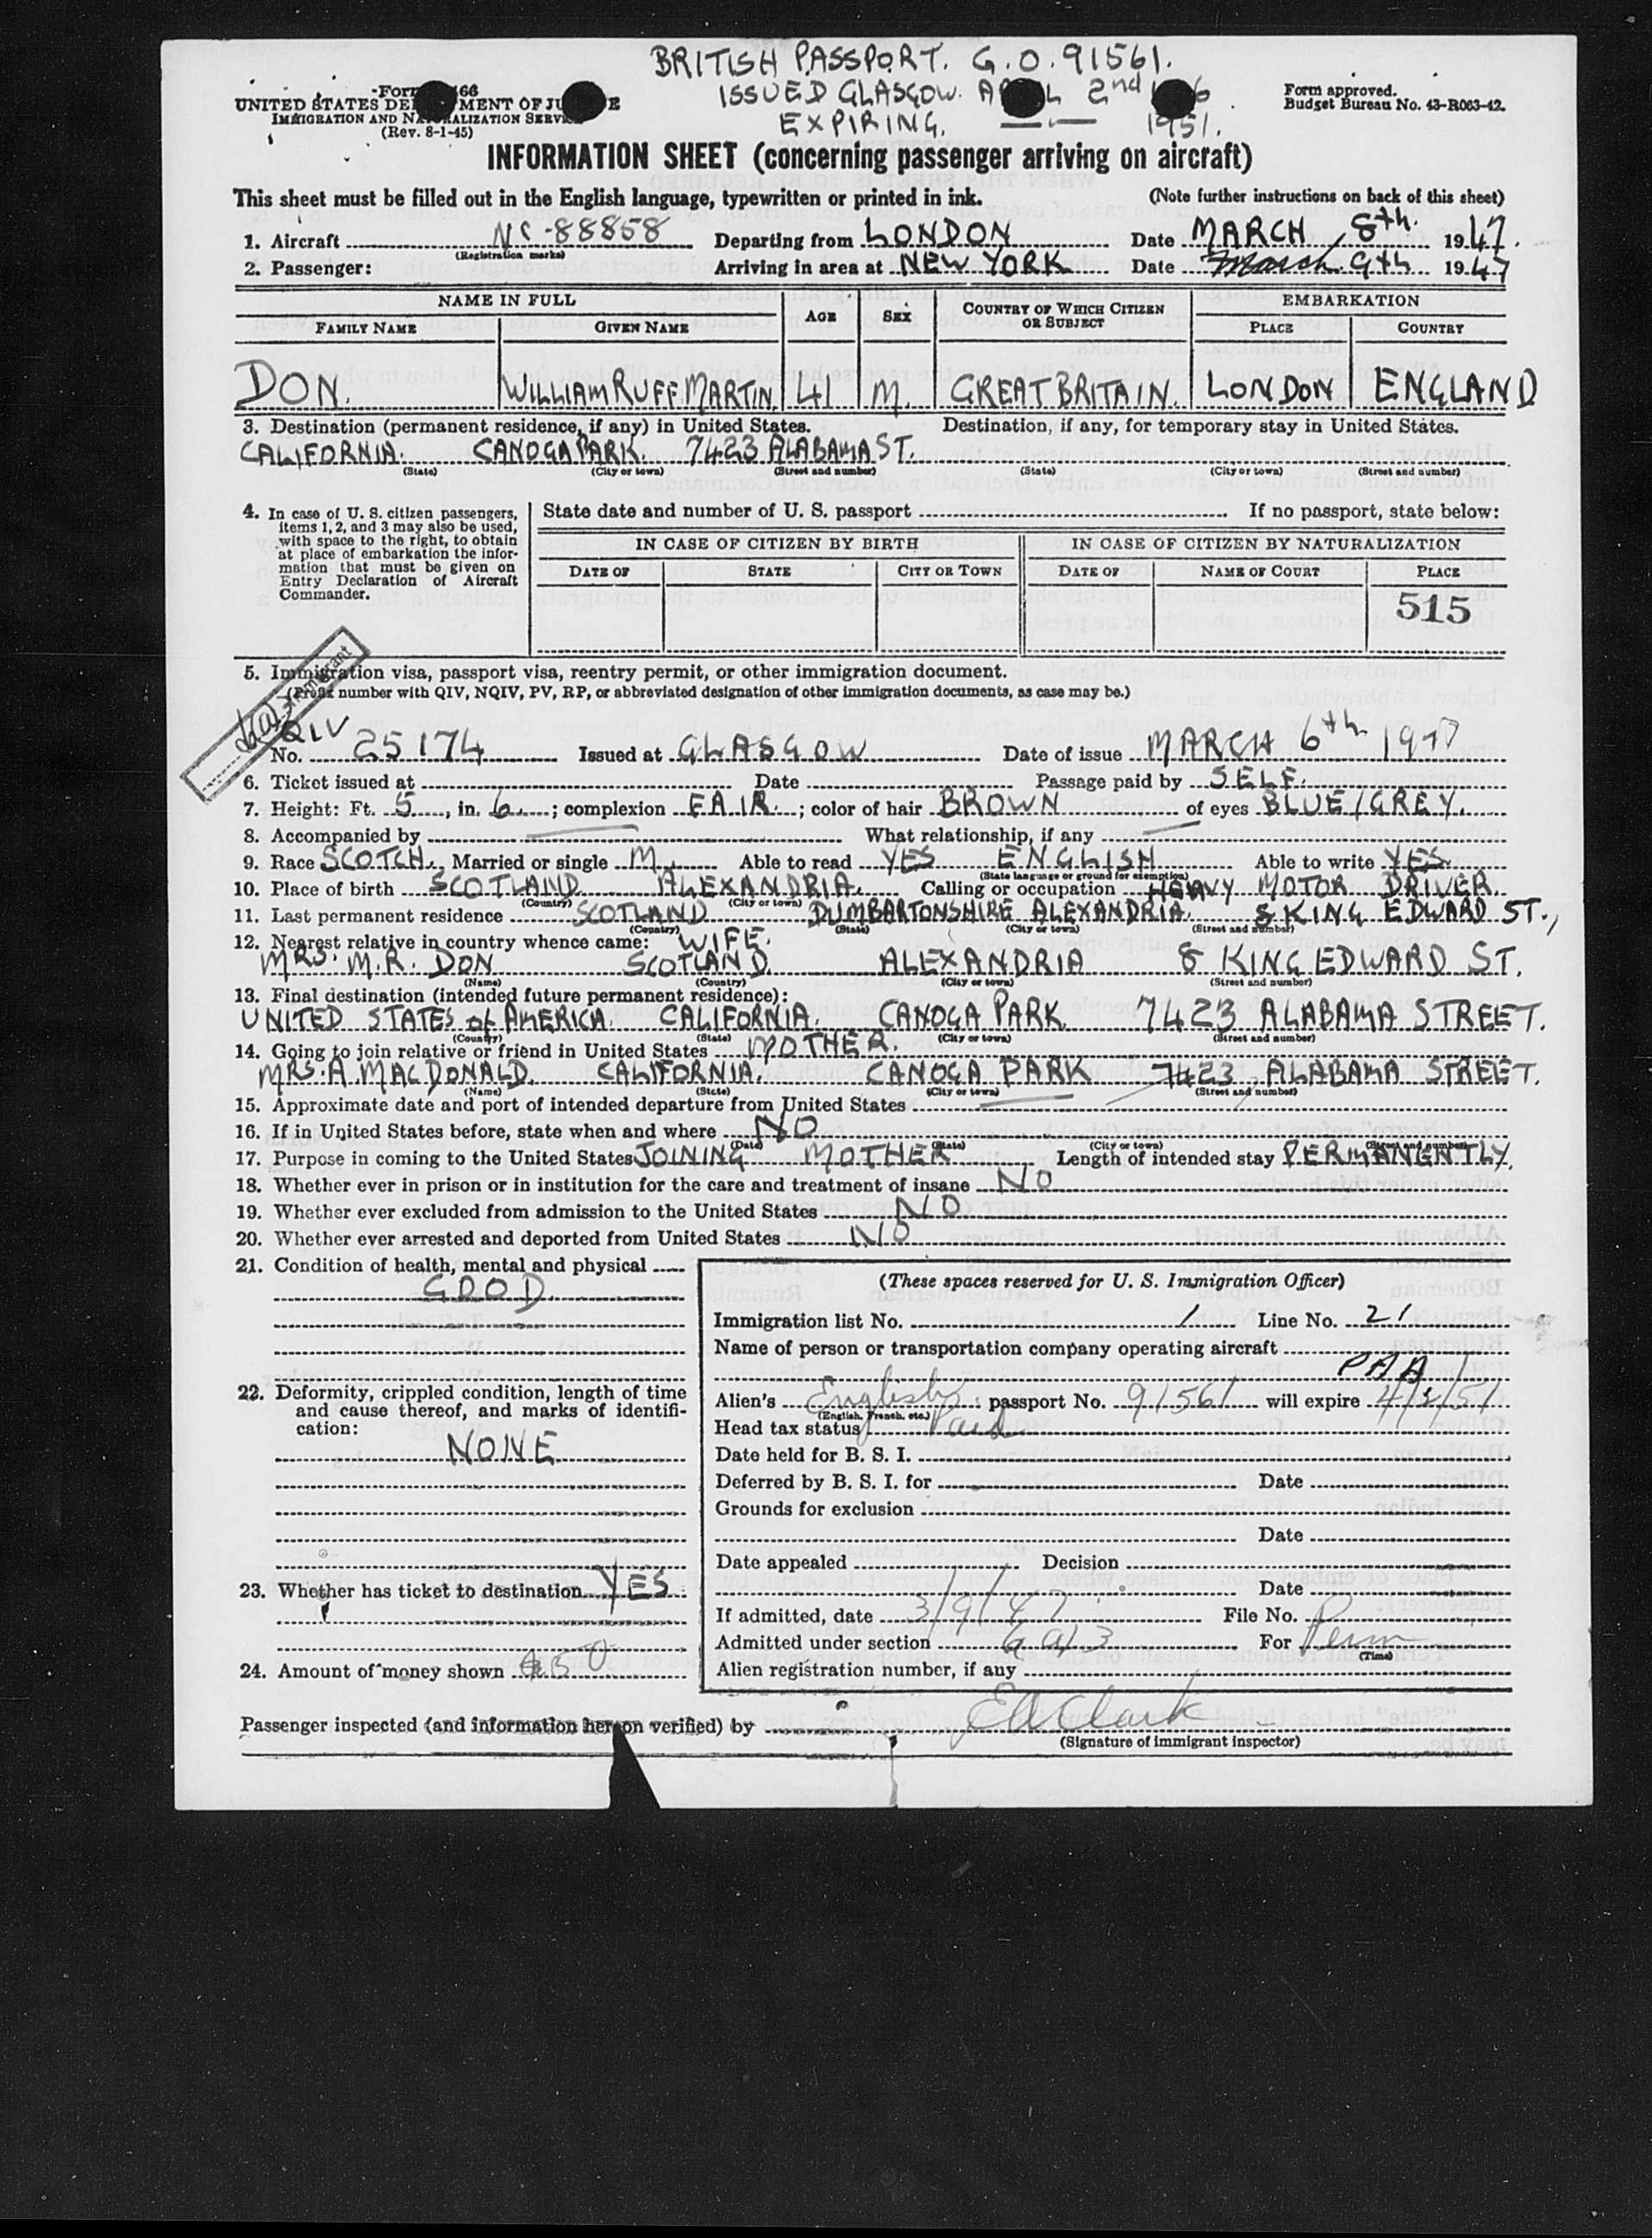 BRITISH PASSPORT. G.O. 91561.
ISSUED GLASGOW. 2nd
EXPIRING. 1951.
UNITED STATES
IMMIGRATION AND
(Rev. 8-1-45)
Form approved.
Budget Bureau No. 43-R063-42.
INFORMATION SHEET (concerning passenger arriving on aircraft)
This sheet must be filled out in the English language, typewritten or printed in ink. (Note further instructions on back of this sheet)
1. Aircraft NC-88858 Departing from LONDON Date MARCH 8th. 1947.
(Registration marks)
2. Passenger: Arriving in area at NEW YORK Date March 9th 1947
NAME IN FULL AGE SEX COUNTRY OF WHICH CITIZEN OR SUBJECT EMBARKATION
FAMILY NAME GIVEN NAME PLACE COUNTRY
DON. WILLIAM RUFF MARTIN. 41 M. GREAT BRITAIN. LONDON ENGLAND
3. Destination (permanent residence, if any) in United States. Destination, if any, for temporary stay in United States.
CALIFORNIA. CANOGA PARK. 7423 ALABAMA ST.
(State) (City or town) (Street and number) (State) (City or town) (Street and number)
4. In case of U. S. citizen passengers, items 1, 2, and 3 may also be used, with space to the right, to obtain at place of embarkation the information that must be given on Entry Declaration of Aircraft Commander.
State date and number of U. S. passport If no passport, state below:
IN CASE OF CITIZEN BY BIRTH IN CASE OF CITIZEN BY NATURALIZATION
DATE OF STATE CITY OR TOWN DATE OF NAME OF COURT PLACE
515
5. Immigration visa, passport visa, reentry permit, or other immigration document.
(Prefix number with QIV, NQIV, PV, RP, or abbreviated designation of other immigration documents, as case may be.)
QIV
No. 25174 Issued at GLASGOW Date of issue MARCH 6th 1947
6. Ticket issued at Date Passage paid by SELF.
7. Height: Ft. 5, in. 6.; complexion FAIR.; color of hair BROWN of eyes BLUE/GREY.
8. Accompanied by What relationship, if any
9. Race SCOTCH. Married or single M. Able to read YES ENGLISH Able to write YES.
(State language or ground for exemption)
10. Place of birth SCOTLAND ALEXANDRIA. Calling or occupation HEAVY MOTOR DRIVER.
(Country) (City or town)
11. Last permanent residence SCOTLAND DUMBARTONSHIRE ALEXANDRIA. 8 KING EDWARD ST.,
(Country) (State) (City or town) (Street and number)
12. Nearest relative in country whence came: WIFE.
MRS. M.R. DON SCOTLAND ALEXANDRIA 8 KING EDWARD ST.
(Name) (Country) (City or town) (Street and number)
13. Final destination (intended future permanent residence):
UNITED STATES of AMERICA. CALIFORNIA. CANOGA PARK. 7423 ALABAMA STREET.
(Country) (State) (City or town) (Street and number)
14. Going to join relative or friend in United States MOTHER.
MRS. A. MACDONALD. CALIFORNIA. CANOGA PARK 7423 ALABAMA STREET.
(Name) (State) (City or town) (Street and number)
15. Approximate date and port of intended departure from United States
16. If in United States before, state when and where NO
(Date) (State) (City or town) (Street and number)
17. Purpose in coming to the United States JOINING MOTHER Length of intended stay PERMANENTLY.
18. Whether ever in prison or in institution for the care and treatment of insane NO
19. Whether ever excluded from admission to the United States NO
20. Whether ever arrested and deported from United States NO
21. Condition of health, mental and physical
GOOD.
22. Deformity, crippled condition, length of time and cause thereof, and marks of identification:
NONE
23. Whether has ticket to destination YES
24. Amount of money shown $50
(These spaces reserved for U. S. Immigration Officer)
Immigration list No. 1 Line No. 21
Name of person or transportation company operating aircraft
PAA
Alien's English passport No. 91561 will expire 4/2/51
(English, French, etc.)
Head tax status Paid
Date held for B. S. I.
Deferred by B. S. I. for Date
Grounds for exclusion
Date
Date appealed Decision
Date
If admitted, date 3/9/47 File No.
Admitted under section 6 a 3 For Perm
(Time)
Alien registration number, if any
Passenger inspected (and information hereon verified) by EA Clark
(Signature of immigrant inspector)